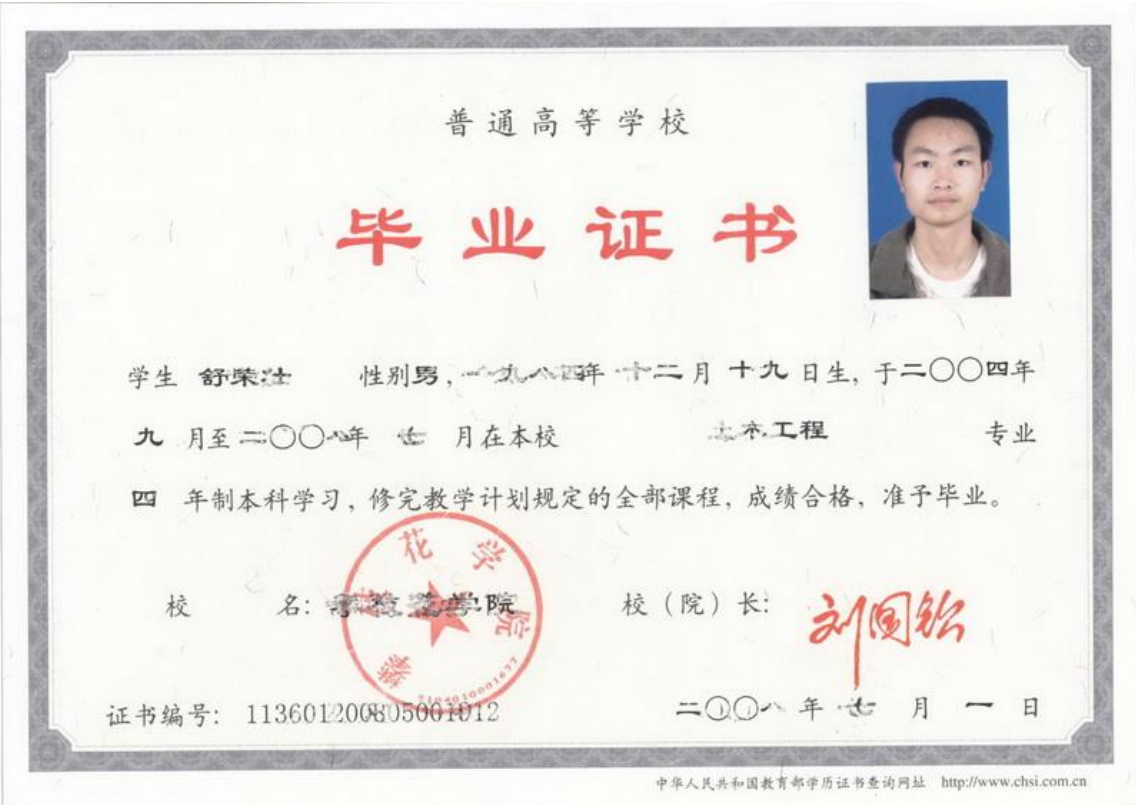 普通高等学校
毕业证书
学生 舒荣社 性别男,一九八四年 十二月 十九 日生, 于二〇〇四年
九 月至 二〇〇八年 七 月在本校 土木工程 专业
四 年制本科学习, 修完教学计划规定的全部课程, 成绩合格, 准予毕业。
校 名: 攀枝花学院 校(院)长: 刘国钦
攀枝花学院
证书编号: 113601200805001012
二〇〇八 年 七 月 一 日
中华人民共和国教育部学历证书查询网址 http://www.chsi.com.cn